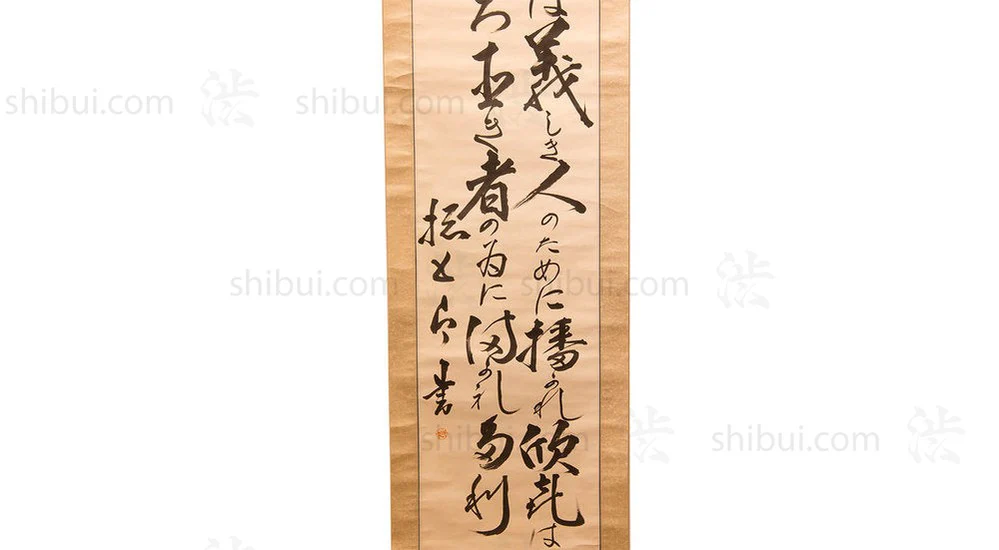 は義しき人のために播かれ欣喜は
ろ直き者の為に満かれ多利
書
shibui.com 渋 shibui.com
shibui.com shibui.com 渋
shibui.com 渋 shibui.com 渋